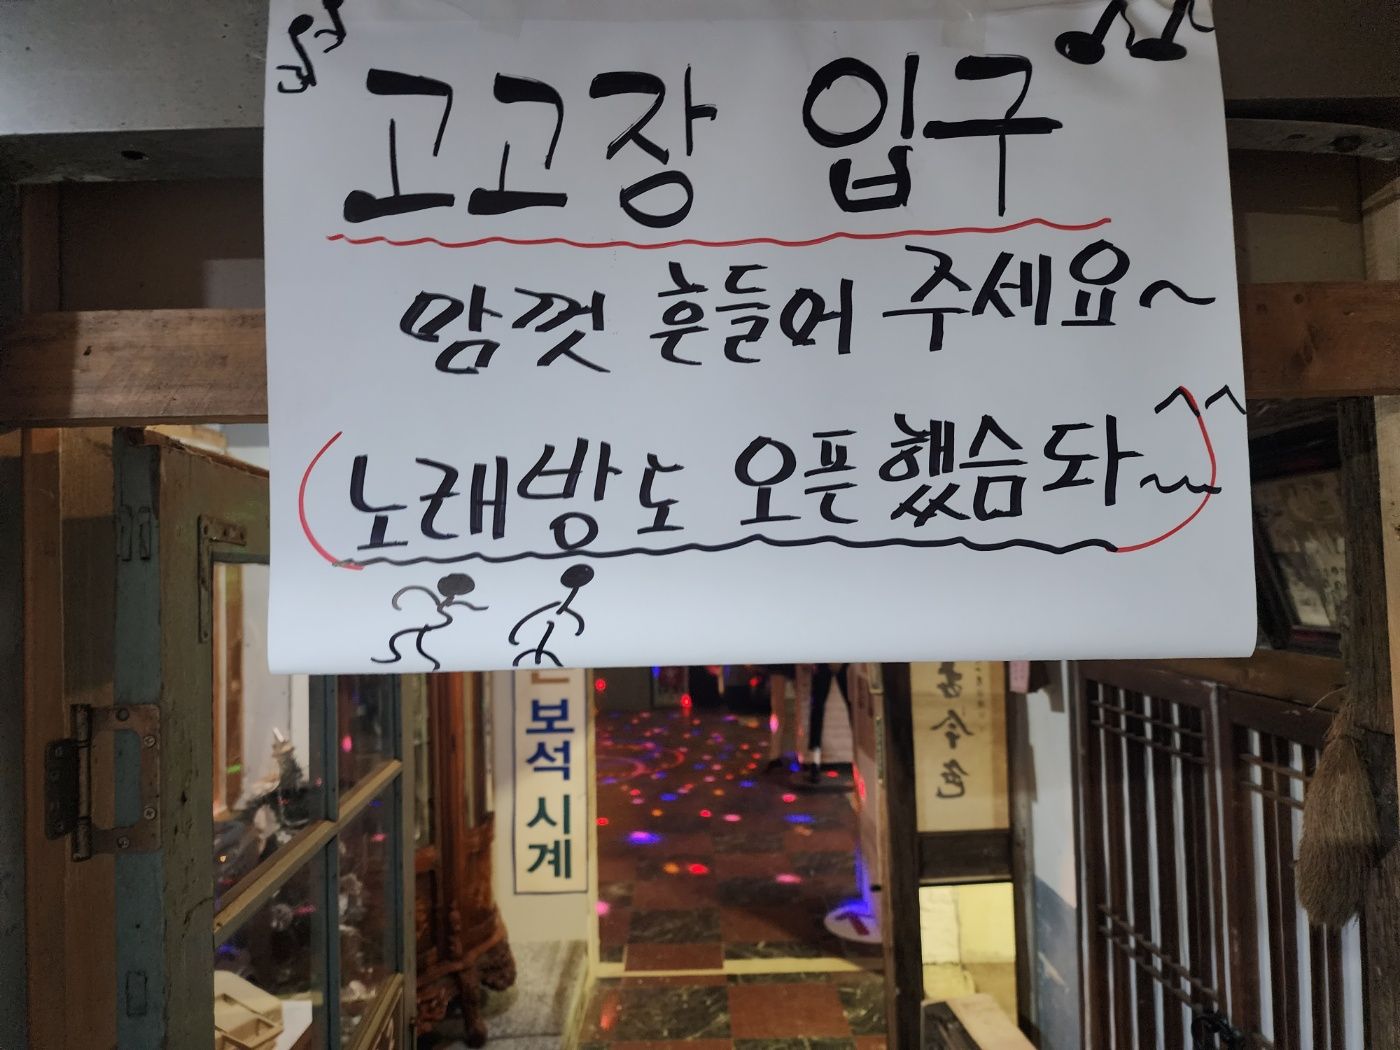 고고장 입구
맘껏 흔들어 주세요~
(노래방도 오픈했슴돠~^^)
보석 시계
古今色